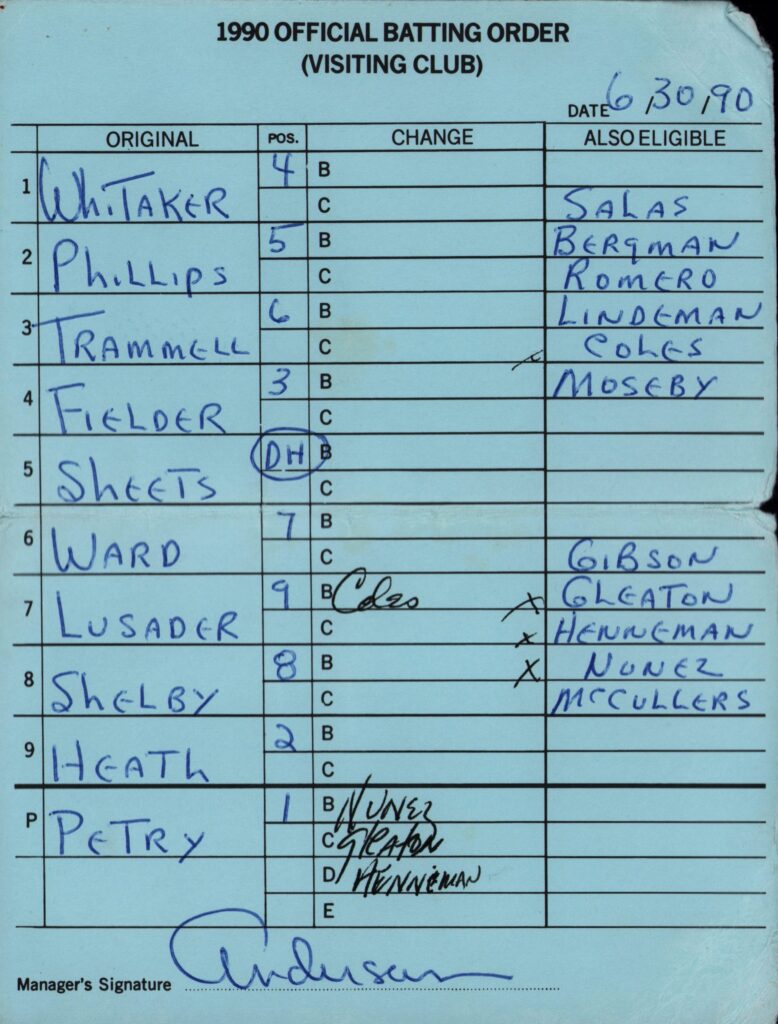 1990 OFFICIAL BATTING ORDER
(VISITING CLUB)
DATE 6/30/90
ORIGINAL POS. CHANGE ALSO ELIGIBLE
1 WHITAKER 4 B
C SALAS
2 PHILLIPS 5 B BERGMAN
C ROMERO
3 TRAMMELL 6 B LINDEMAN
C COLES
4 FIELDER 3 B MOSEBY
C
5 SHEETS DH B
C
6 WARD 7 B
C GIBSON
7 LUSADER 9 B Coles X GLEATON
C X HENNEMAN
8 SHELBY 8 B X NUNEZ
C MCCULLERS
9 HEATH 2 B
C
P PETRY 1 B NUNEZ
C GLEATON
D HENNEMAN
E
Manager's Signature Anderson